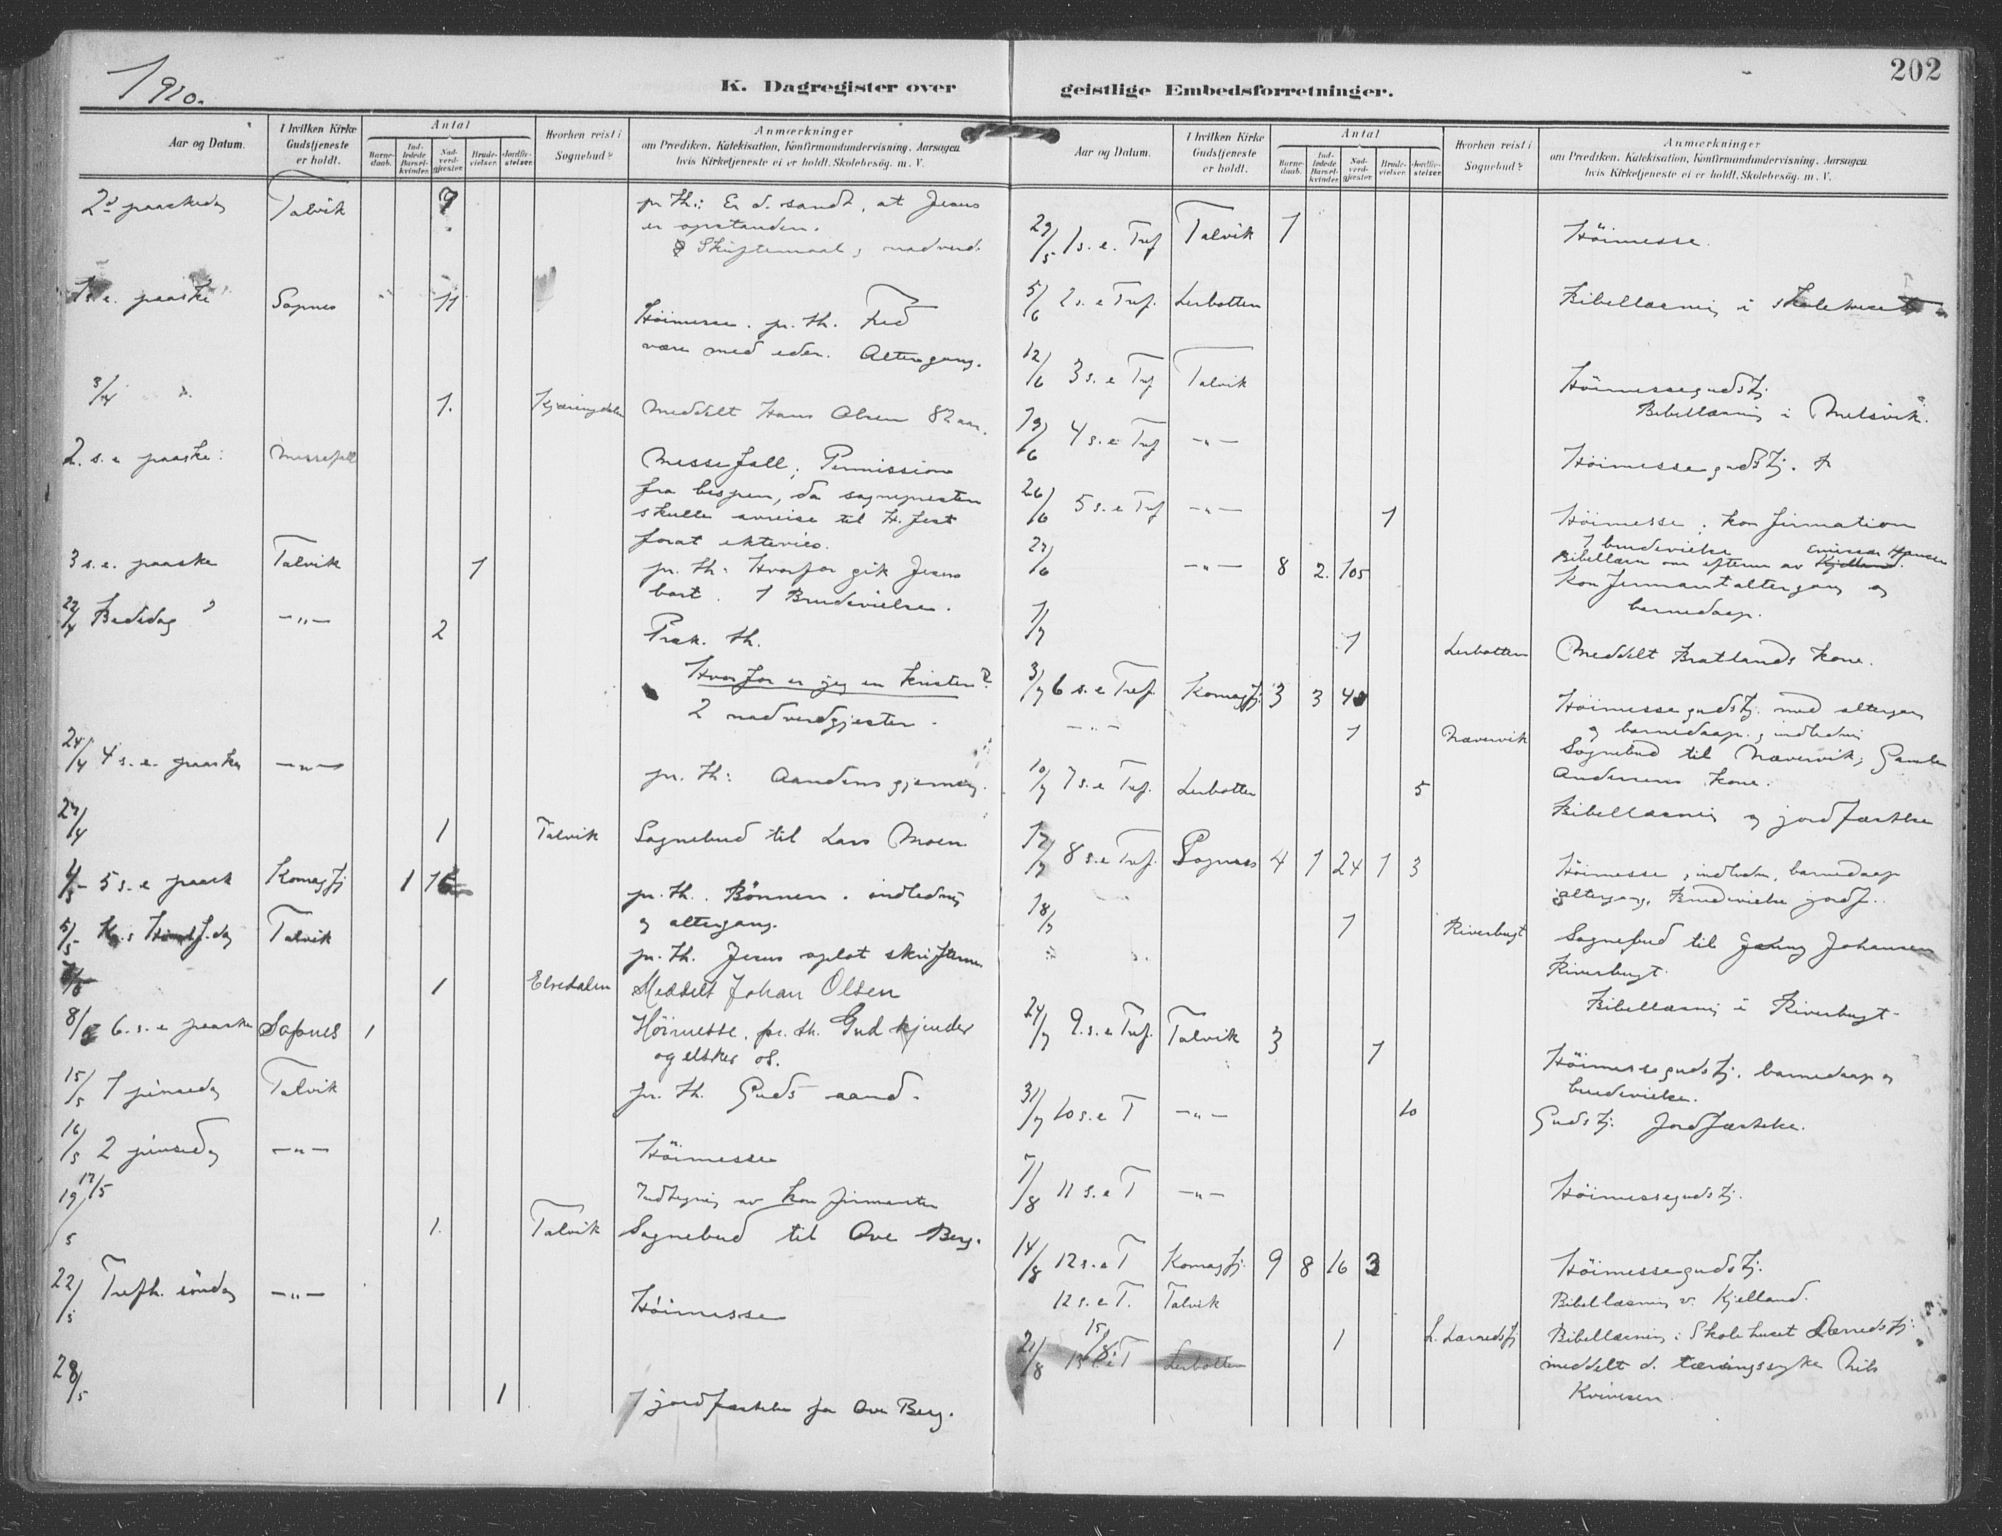 1910.
K. Dagregister over
Aar og Datum.
I hvilken Kirke Gudstjeneste er holdt.
Antal
Barnedaab.
Indledede Barselkvinder.
Nadverdgjester.
Brudevielser.
Jordfæstelser.
Hvorhen reist i Sognebud?
Anmærkninger
om Prædiken, Katekisation, Konfirmandundervisning, Aarsagen
hvis Kirketjeneste ei er holdt, Skolebesög. m. V.
2den paaskedag Talvik 9 pr. th.: Er d. sandt, at Jesus
er opstanden.
Skriftemaal, nadverd.
1 s. e. paaske Sopnes 11
Höimesse. pr. th. Fred
være med eder. Altergang.
3/4 1. Kjæringdalen Meddelt Hans Olsen 82 aar.
2. s. e paaske: Messefall Messefall, Permission
fra bispen, da sognepresten
skulle avreise til H.fest
forat ektevies.
3 s. e. paaske Talvik 1 pr. th: Hvorfor gik Jesus
bort. 1 Brudevielse.
22/4 Bededag —„— 2 Præk. th.
Hvorfor er jeg en kristen?
2 nadverdgjester.
24/4 4 s. e. paaske —„— pr. th: Aandens gjerning.
27/4 1 Talvik Sognebud til Lars Moen
5 s. e paask Komagfj 1 pr. th. Bönnen. indledning
og altergang.
5/5 Kr. Himlf.dag Talvik pr. th. Jesus oplot skrifterne
1 Elvedalen Meddelt Johan Olsen
8/5 6. s. e paaske Sopnes 1 Höimesse, pr. th. Gud kjender
og elsker os.
15/5 1 pinsedag Talvik pr. th. Guds aand.
16/5 2 pinsedag —„— Höimesse
17/5 Indtegning av konfirmanter
19/5 1. Talvik Sognebud til Ove Berg.
22/5 Trefh. söndag —„— Höimesse
28/5 1 1 jordfæstelse for Ove Berg.
202
geistlige Embedsforretninger.
Aar og Datum.
I hvilken Kirke Gudstjeneste er holdt.
Antal
Barnedaab.
Indledede Barselkvinder.
Nadverdgjester.
Brudevielser.
Jordfæstelser.
Hvorhen reist i Sognebud?
Anmærkninger
om Prædiken, Katekisation, Konfirmandundervisning, Aarsagen
hvis Kirketjeneste ei er holdt, Skolebesög. m. V.
29/5 1 s. e. Tref Talvik 1 Höimesse.
5/6 2 s. e Tref. Lerbotten Bibellæsning i skolehuset
12/6 3 s. e Tref Talvik Höimessegudstj.
Bibellæsning i Melsvik.
19/6 4 s. e Tref —„— Höimessegudstj.
26/6 5 s. e Tref —„— 1 Höimesse, konfirmation
1 brudevielse
Bibellæsn om efterm av Kjelland. emissær Hansen
27/6 —„— 8 2. 105 Konfirmantaltergang og
barnedaap.
1/7 1 Lerbotten Meddelt Bratlands kone.
3/7 6 s. e Tref. Komagfj. 3 3 Höimessegudstj. med altergang
og barnedaap, indledning
—„— 1 Nævervik Sognebud til Nævervik, Gamle
Andersens kone.
10/7 7 s. e Tref. Lerbotten 5 Bibellæsning og jordfæstelse
17/7 8 s. e Tref. Sopnes 4 1 24 1 3 Höimesse, indledn, barnedaap
altergang, Brudevielse jordf.
18/7 1 Riverbugt Sognebud til Johansen
Riverbugt.
Bibellæsning i Riverbugt.
24/7 9. s. e Tref. Talvik 3 1 Höimessegudstj. barnedaap og
brudevielse.
31/7 10 s. e T —„— 10 Gudstj. Jordfæstelse.
7/8 11 s. e T —„— Höimessegudstj.
14/8 12 s. e T Komagfj. 9 8 16 3 Höimessegudstj.
12 s. e T. Talvik Bibellæsning v. Kjelland.
15/8 1 L. Lærredsfj Bibellæsning i Skolehuset Lærredsfj.
21/8 13 s. e T Lerbotten meddelt d. tæringssyke Nils
Kvivesen.